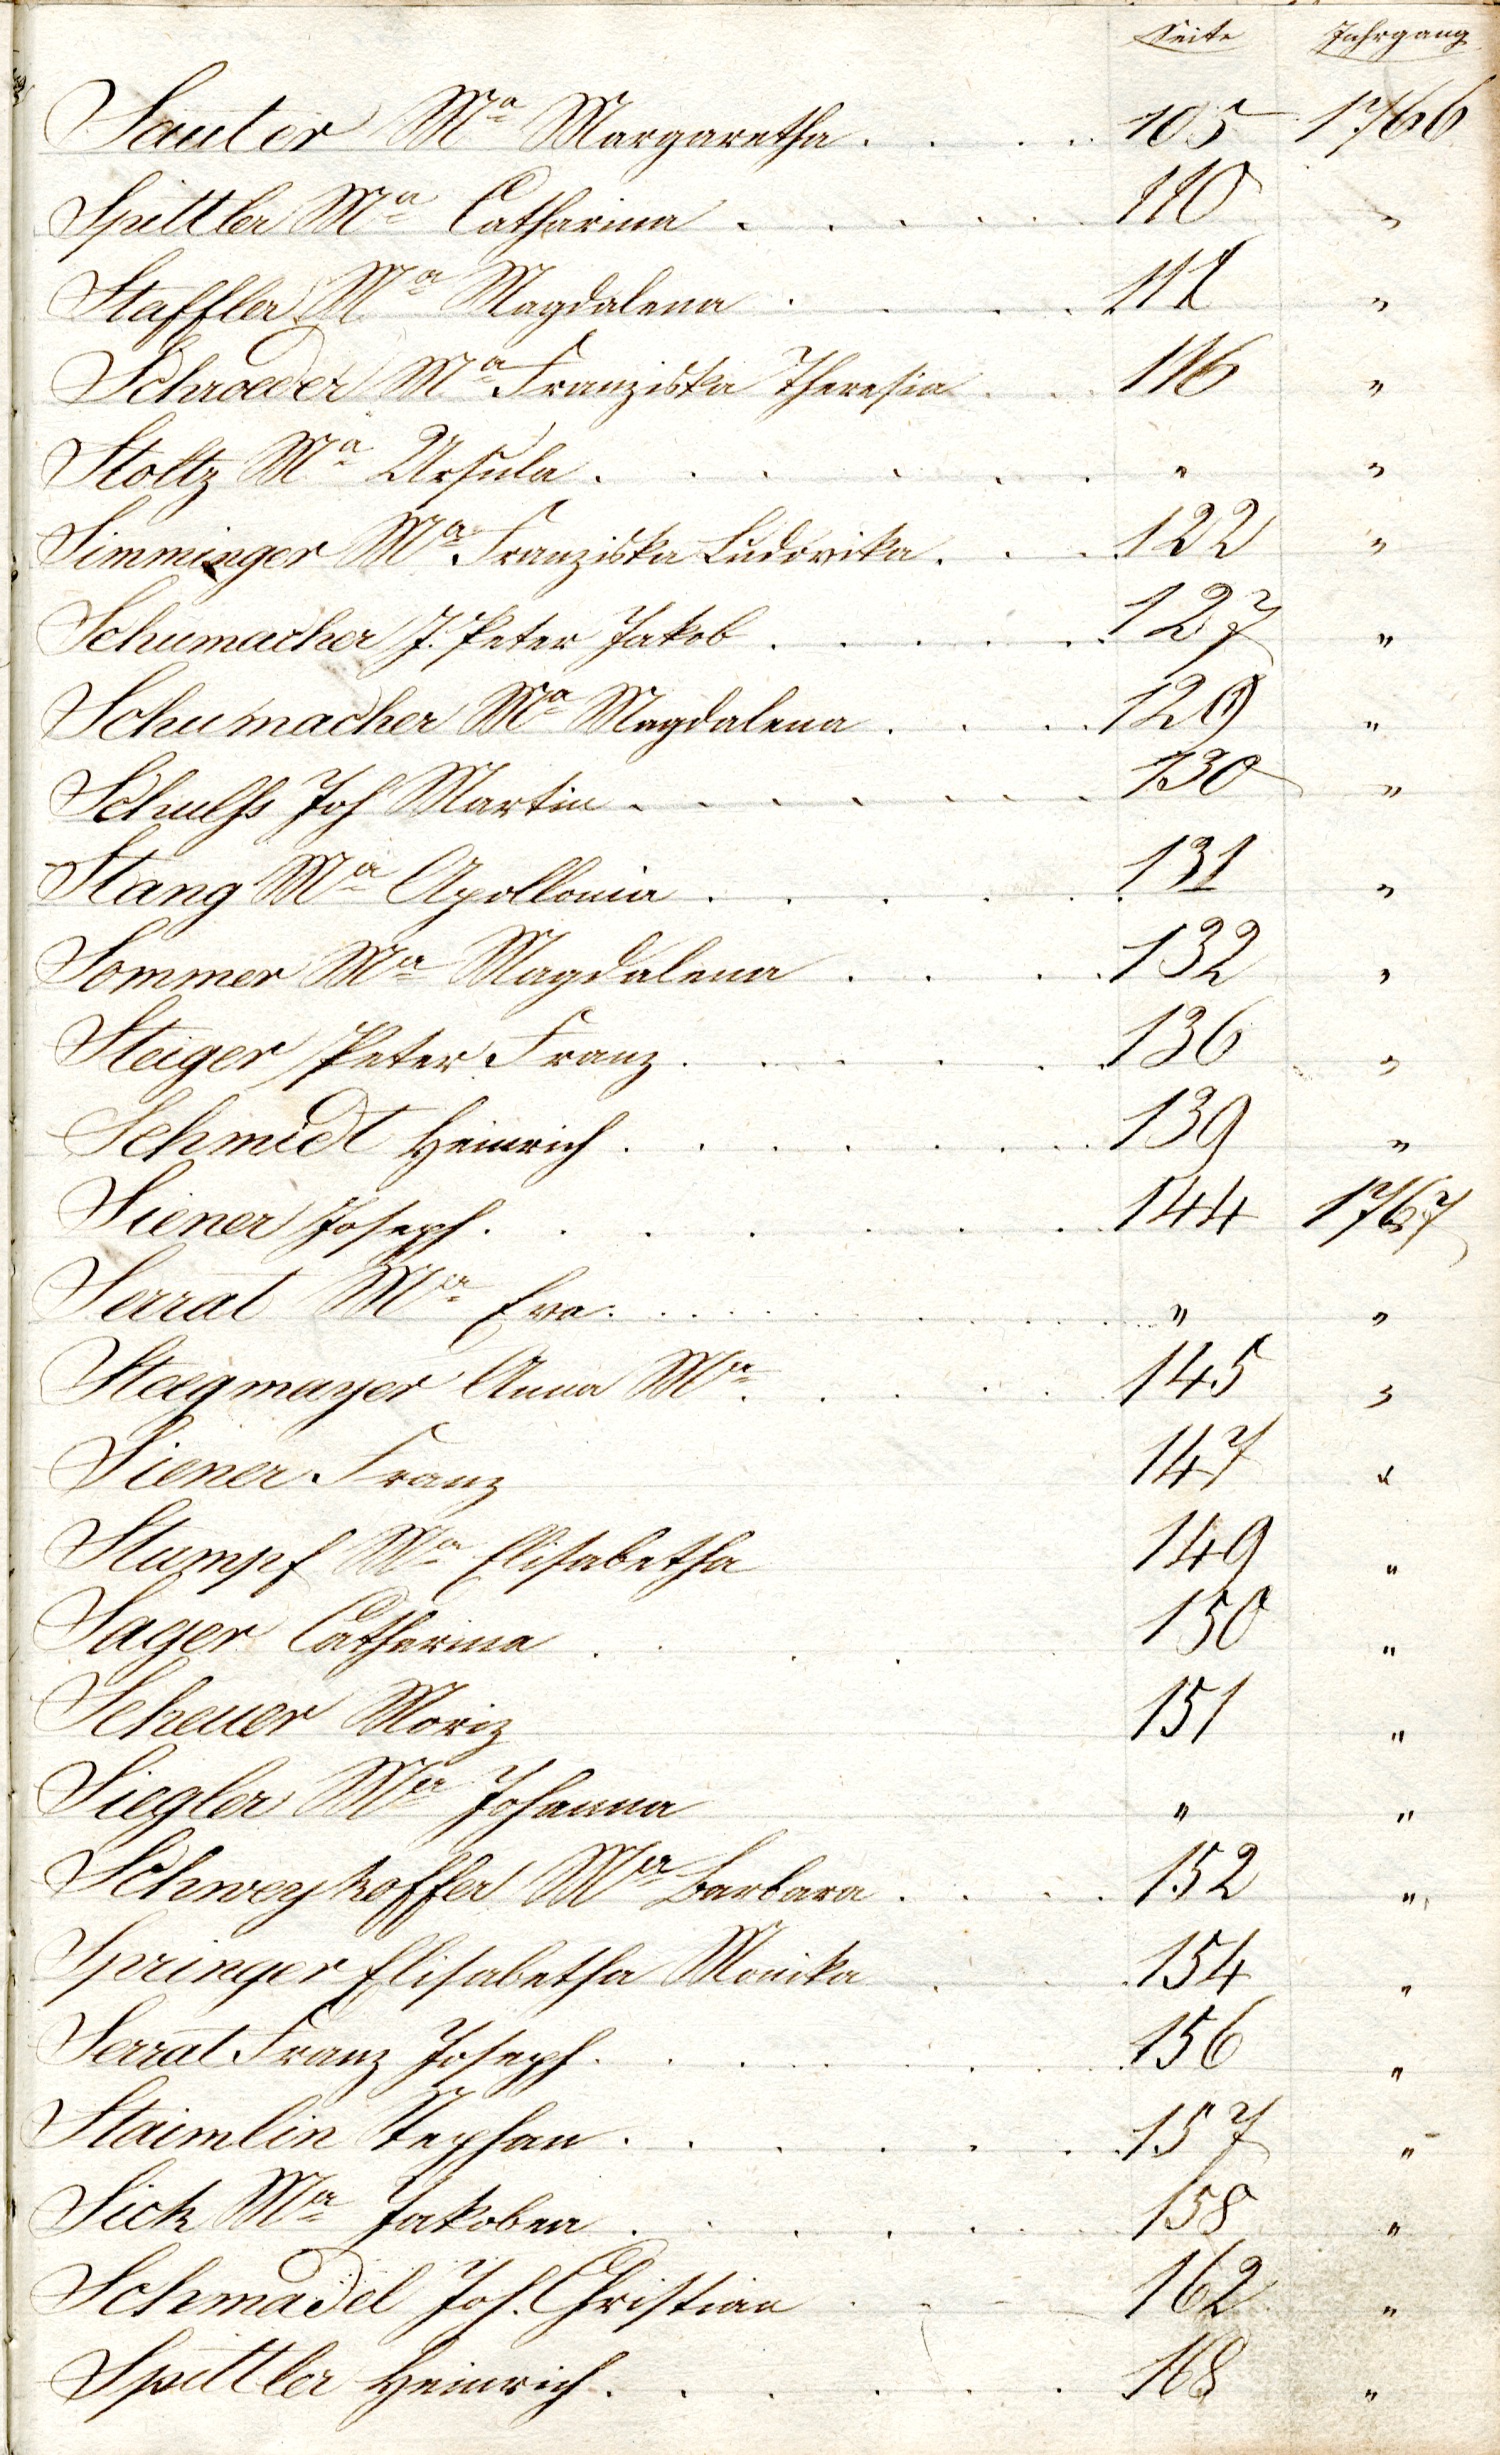 Seite Jahrgang
Sauter Mª Margaretha . . . . 105 1766
Spittler Mª Catharina . . . . . 110 "
Staffler Mª Magdalena . . . . 111 "
Schroeder Mª Franziska Theresia . . 116 "
Stoltz Mª Ursula . . . . . . " "
Simminger Mª Franziska Ludovika . . . 122 "
Schumacher J. Peter Jakob . . . . . 127 "
Schumacher Mª Magdalena . . . 129 "
Schulhs Joh Martin . . . . . . . 130 "
Stang Mª Apollonia . . . . . . 131 "
Sommer Mª Magdalena . . . . 132 "
Steiger Peter Franz . . . . . . 136 "
Schmidt Heinrich . . . . . . . 139 "
Siener Joseph . . . . . . . . 144 1767
Serrat Mª Eva . . . . . . . . " "
Stegmayer Anna Mª . . . . . 145 "
Siener Franz 147 "
Stumpf Mª Elisabetha 149 "
Sager Catharina . . . . 150 "
Scheuer Moriz 151 "
Siegler Mª Johanna " "
Schweyhoffer Mª Barbara . . . . 152 "
Springer Elisabetha Monika . . . 154 "
Serrat Franz Joseph . . . . . . . 156 "
Staimlin Stephan . . . . . . . 157 "
Sick Mª Jakobea . . . . . . 158 "
Schmadel Joh. Christian . . . 162 "
Spittler Heinrich . . . . . . 168 "